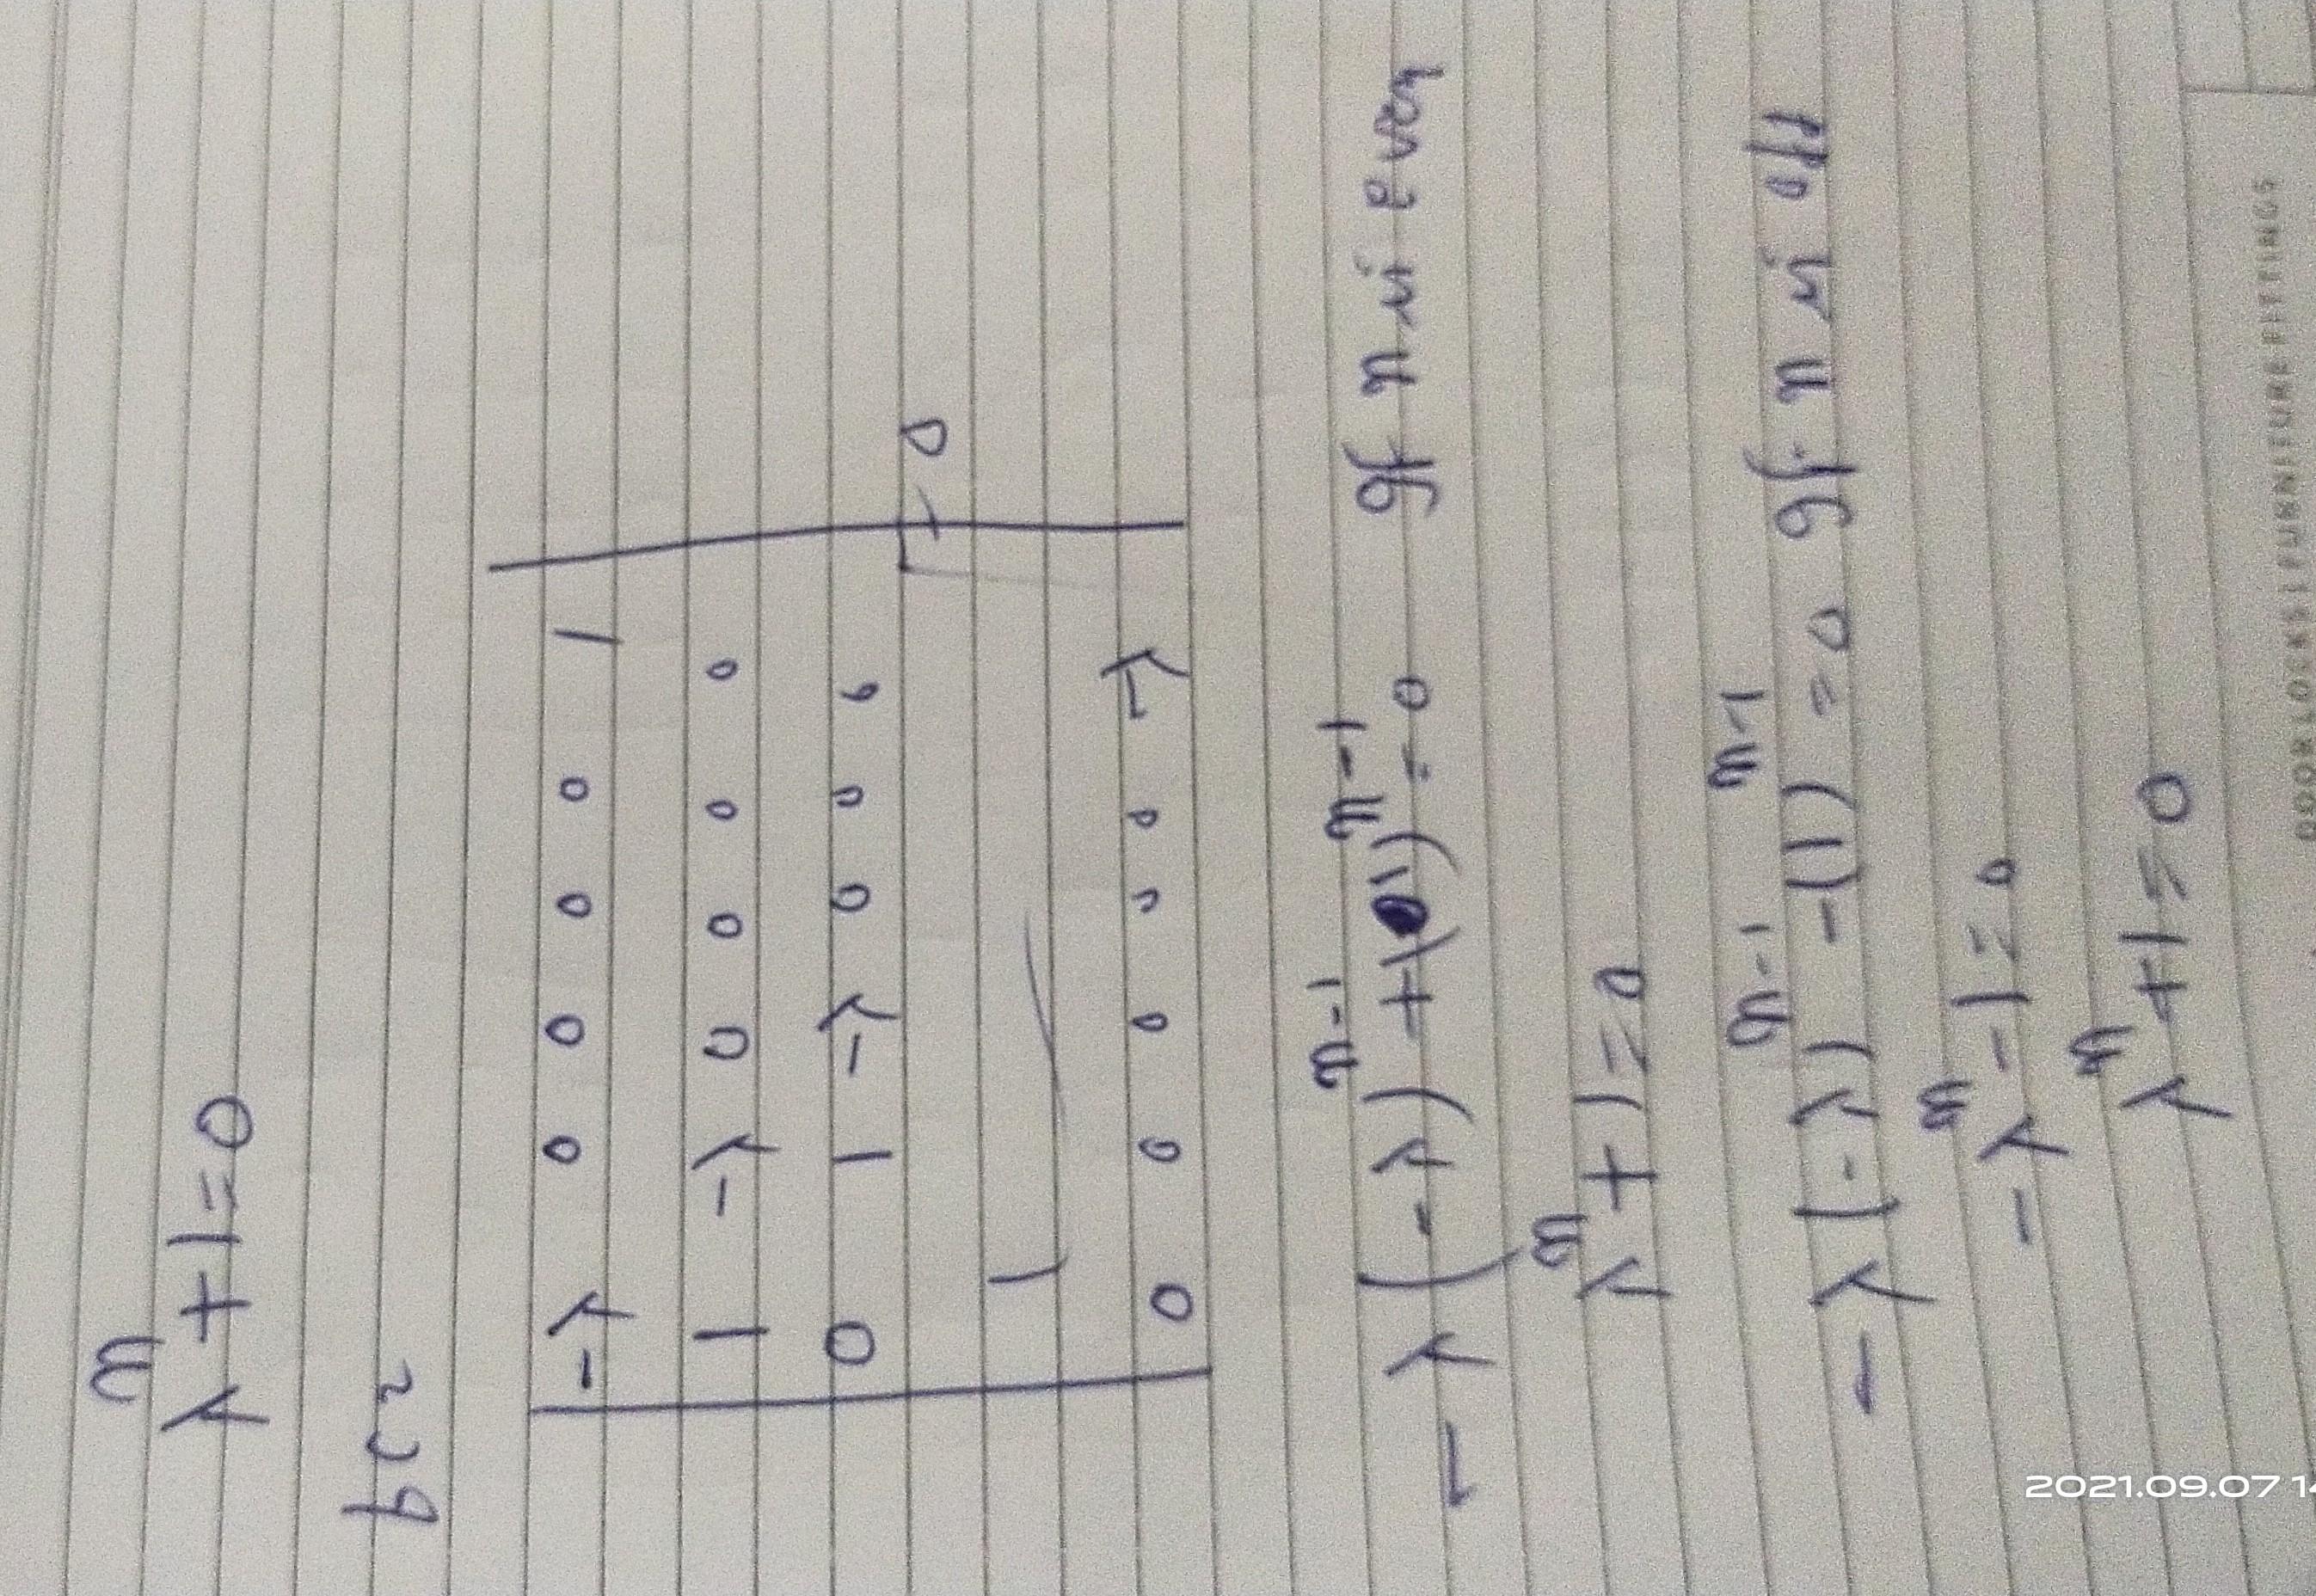 λⁿ + 1 = 0
-λ 0 0 0 0 1
1 -λ 0 0 0 0
0 1 -λ 0 0 0
= 0
0 0 0 0 0 -λ
-λ (-λ)ⁿ⁻¹ + (1)ⁿ⁻¹ = 0 If n is even
λⁿ + 1 = 0
-λ (-λ)ⁿ⁻¹ - (1)ⁿ⁻¹ = 0 If n is odd
-λⁿ - 1 = 0
λⁿ + 1 = 0
2021.09.07 14